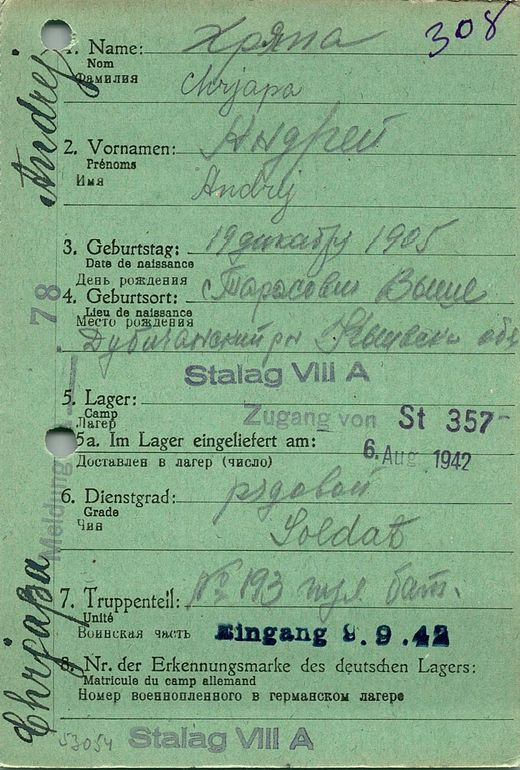 308
1. Name: Хряпа
Nom
Фамилия Chrjapa
2. Vornamen: Андрей
Prénoms
Имя Andrej
3. Geburtstag: 19 декабру 1905
Date de naissance
День рождения
4. Geburtsort: с Тарасовка Выше
Lieu de naissance
Место рождения
рн обл
Stalag VIII A
5. Lager:
Camp
Лагер
Zugang von St 357
5a. Im Lager eingeliefert am: 6. Aug. 1942
Доставлен в лагер (число)
6. Dienstgrad: рядовой
Grade
Чин Soldat
7. Truppenteil: № 193 пул бат.
Unité
Воинская часть Eingang 9.9.42
8. Nr. der Erkennungsmarke des deutschen Lagers:
Matricule du camp allemand
Номер военнопленного в германском лагере
53054 Stalag VIII A
Chrjapa Andrej
Meldung 78